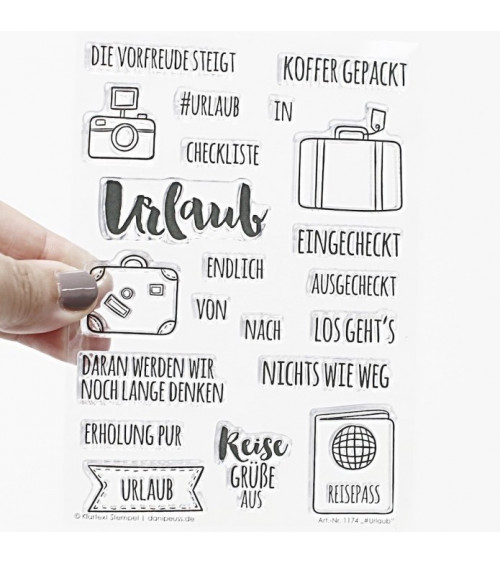 DIE VORFREUDE STEIGT
KOFFER GEPACKT
#URLAUB
IN
CHECKLISTE
Urlaub
EINGECHECKT
ENDLICH
AUSGECHECKT
VON
NACH
LOS GEHT'S
DARAN WERDEN WIR
NOCH LANGE DENKEN
NICHTS WIE WEG
ERHOLUNG PUR
Reise
GRÜßE
AUS
URLAUB
REISEPASS
© Klartext Stempel | danipeuss.de
Art.-Nr. 1174 „#Urlaub"